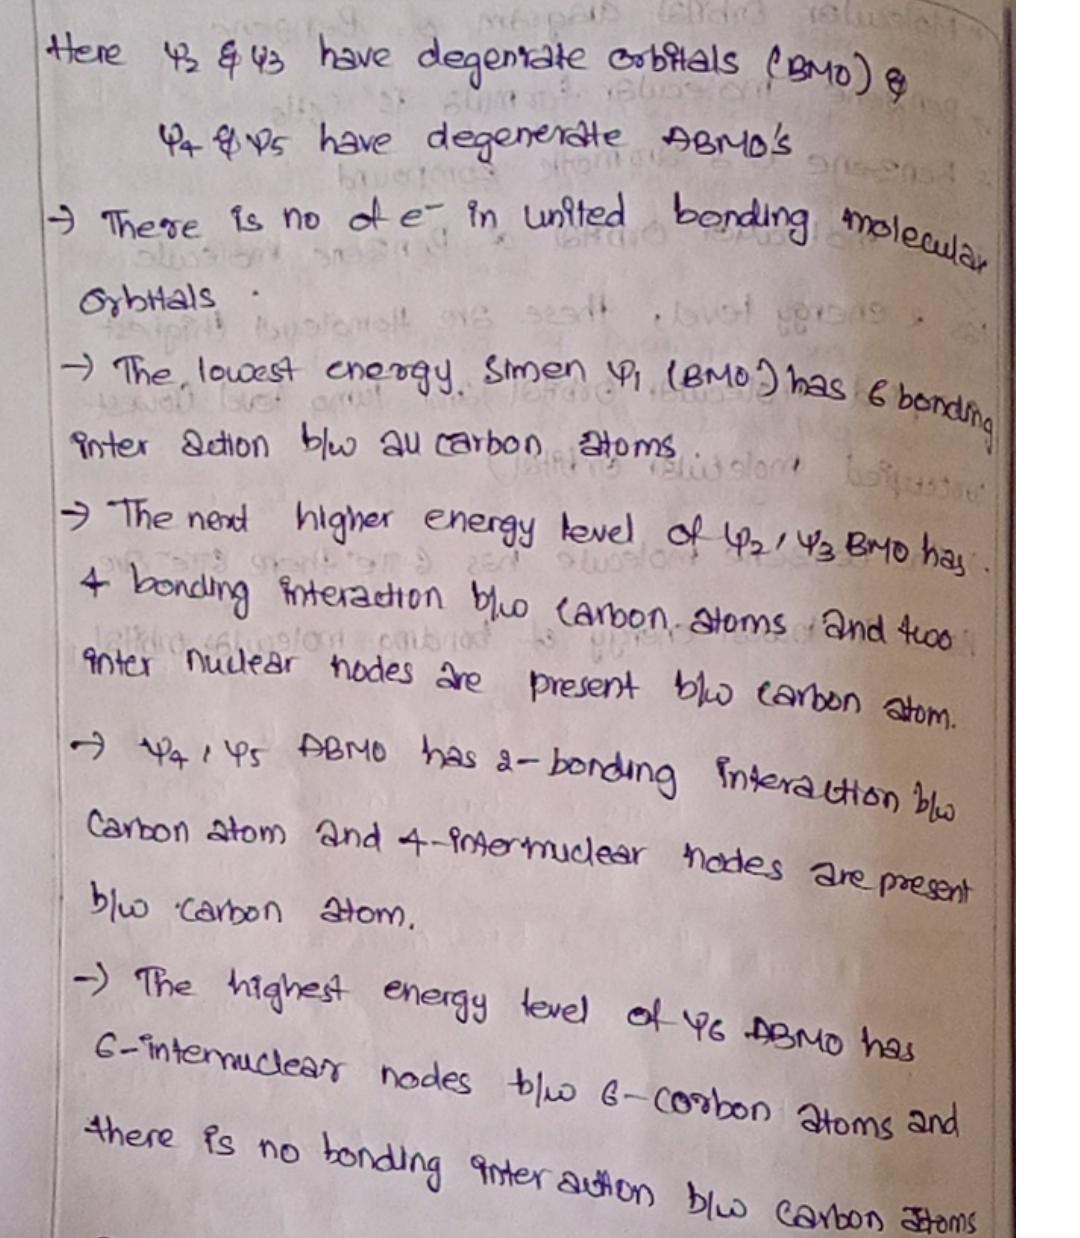 Here ψ2 & ψ3 have degenrate orbitals (BMO) &
ψ4 & ψ5 have degenerate ABMO's
→ There is no of e⁻ in united bonding molecular
orbitals.
→ The lowest energy ψ1 (BMO) has 6 bonding
inter action b/w all carbon atoms.
→ The next higher energy level of ψ2, ψ3 BMO has
4 bonding interaction b/w carbon atoms and two
inter nuclear nodes are present b/w carbon atom.
→ ψ4, ψ5 ABMO has 2-bonding interaction b/w
Carbon atom and 4-internuclear nodes are present
b/w carbon atom.
→ The highest energy level of ψ6 ABMO has
6-internuclear nodes b/w 6-corbon atoms and
there is no bonding inter action b/w carbon atoms